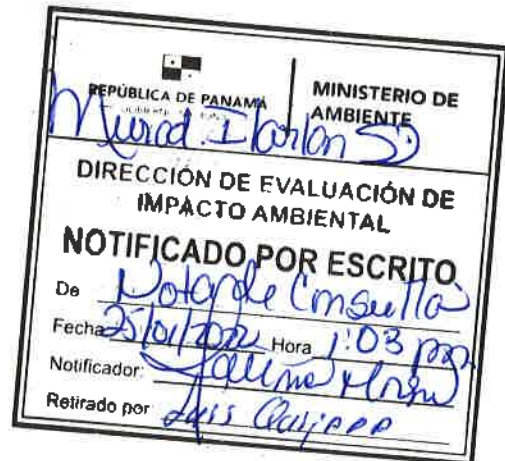 REPÚBLICA DE PANAMÁ
MINISTERIO DE
AMBIENTE
Murad Harlan SD
DIRECCIÓN DE EVALUACIÓN DE
IMPACTO AMBIENTAL
NOTIFICADO POR ESCRITO
De Nota de Consulta
Fecha 25/01/2022 Hora 1:03 pm
Notificador:
Retirado por Luis